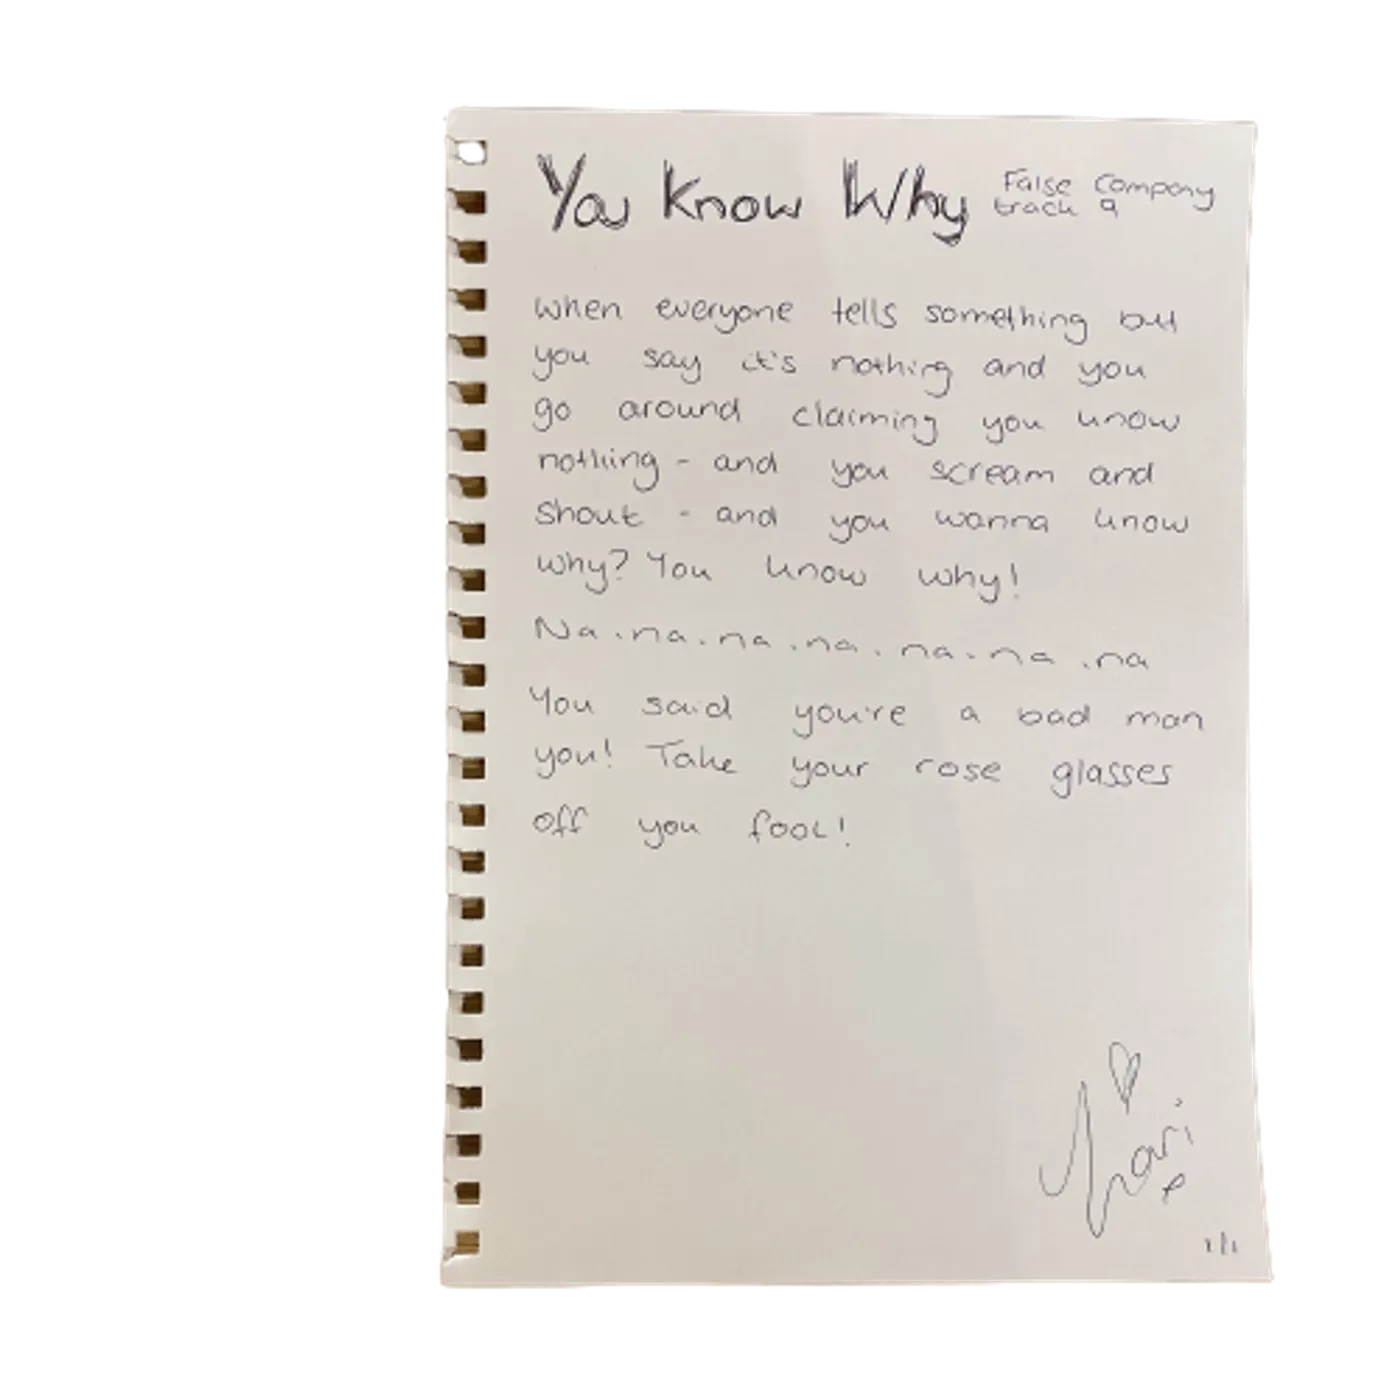 You Know Why
False Company
track 9
When everyone tells something but
you say it's nothing and you
go around claiming you know
nothing - and you scream and
shout - and you wanna know
why? You know why!
Na . na . na . na . na . na . na
You said you're a bad man
you! Take your rose glasses
off you fool!
1/1